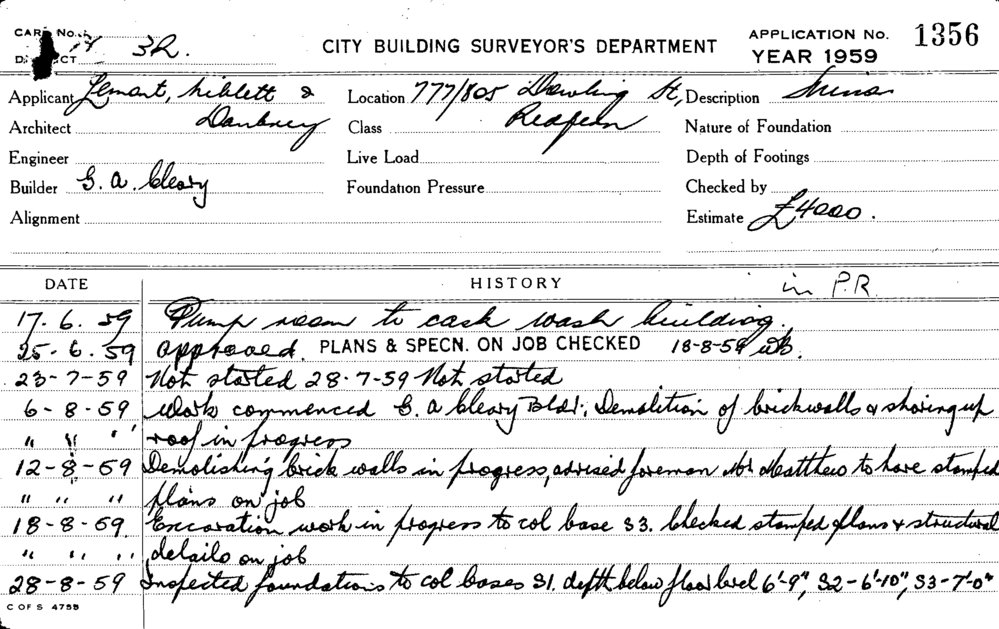 CARD No. 3R. CITY BUILDING SURVEYOR'S DEPARTMENT APPLICATION No. 1356
DISTRICT YEAR 1959
Applicant Niblett & Location 777/805 Dowling St, Description Minor
Architect Daubney Class Redfern Nature of Foundation
Engineer Live Load Depth of Footings
Builder G. A. Cleary Foundation Pressure Checked by
Alignment Estimate £4000.
DATE HISTORY in P.R.
17. 6. 59 Pump room to cask wash building.
25. 6. 59 approved. PLANS & SPECN. ON JOB CHECKED 18-8-59
23-7-59 Not started 28-7-59 Not started
6-8-59 Work commenced G. A Cleary Bldr; Demolition of brickwalls & shoring up
" " " roof in progress
12-8-59 Demolishing brick walls in progress, advised foreman Mr Matthew to have stamped
" " " plans on job
18-8-59. Excavation work in progress to col base S3. Checked stamped plans & structural
" " " details on job
28-8-59 Inspected foundations to col bases S1. depth below floor level 6'-9", S2-6'-10", S3-7'-0"
C OF S 4755